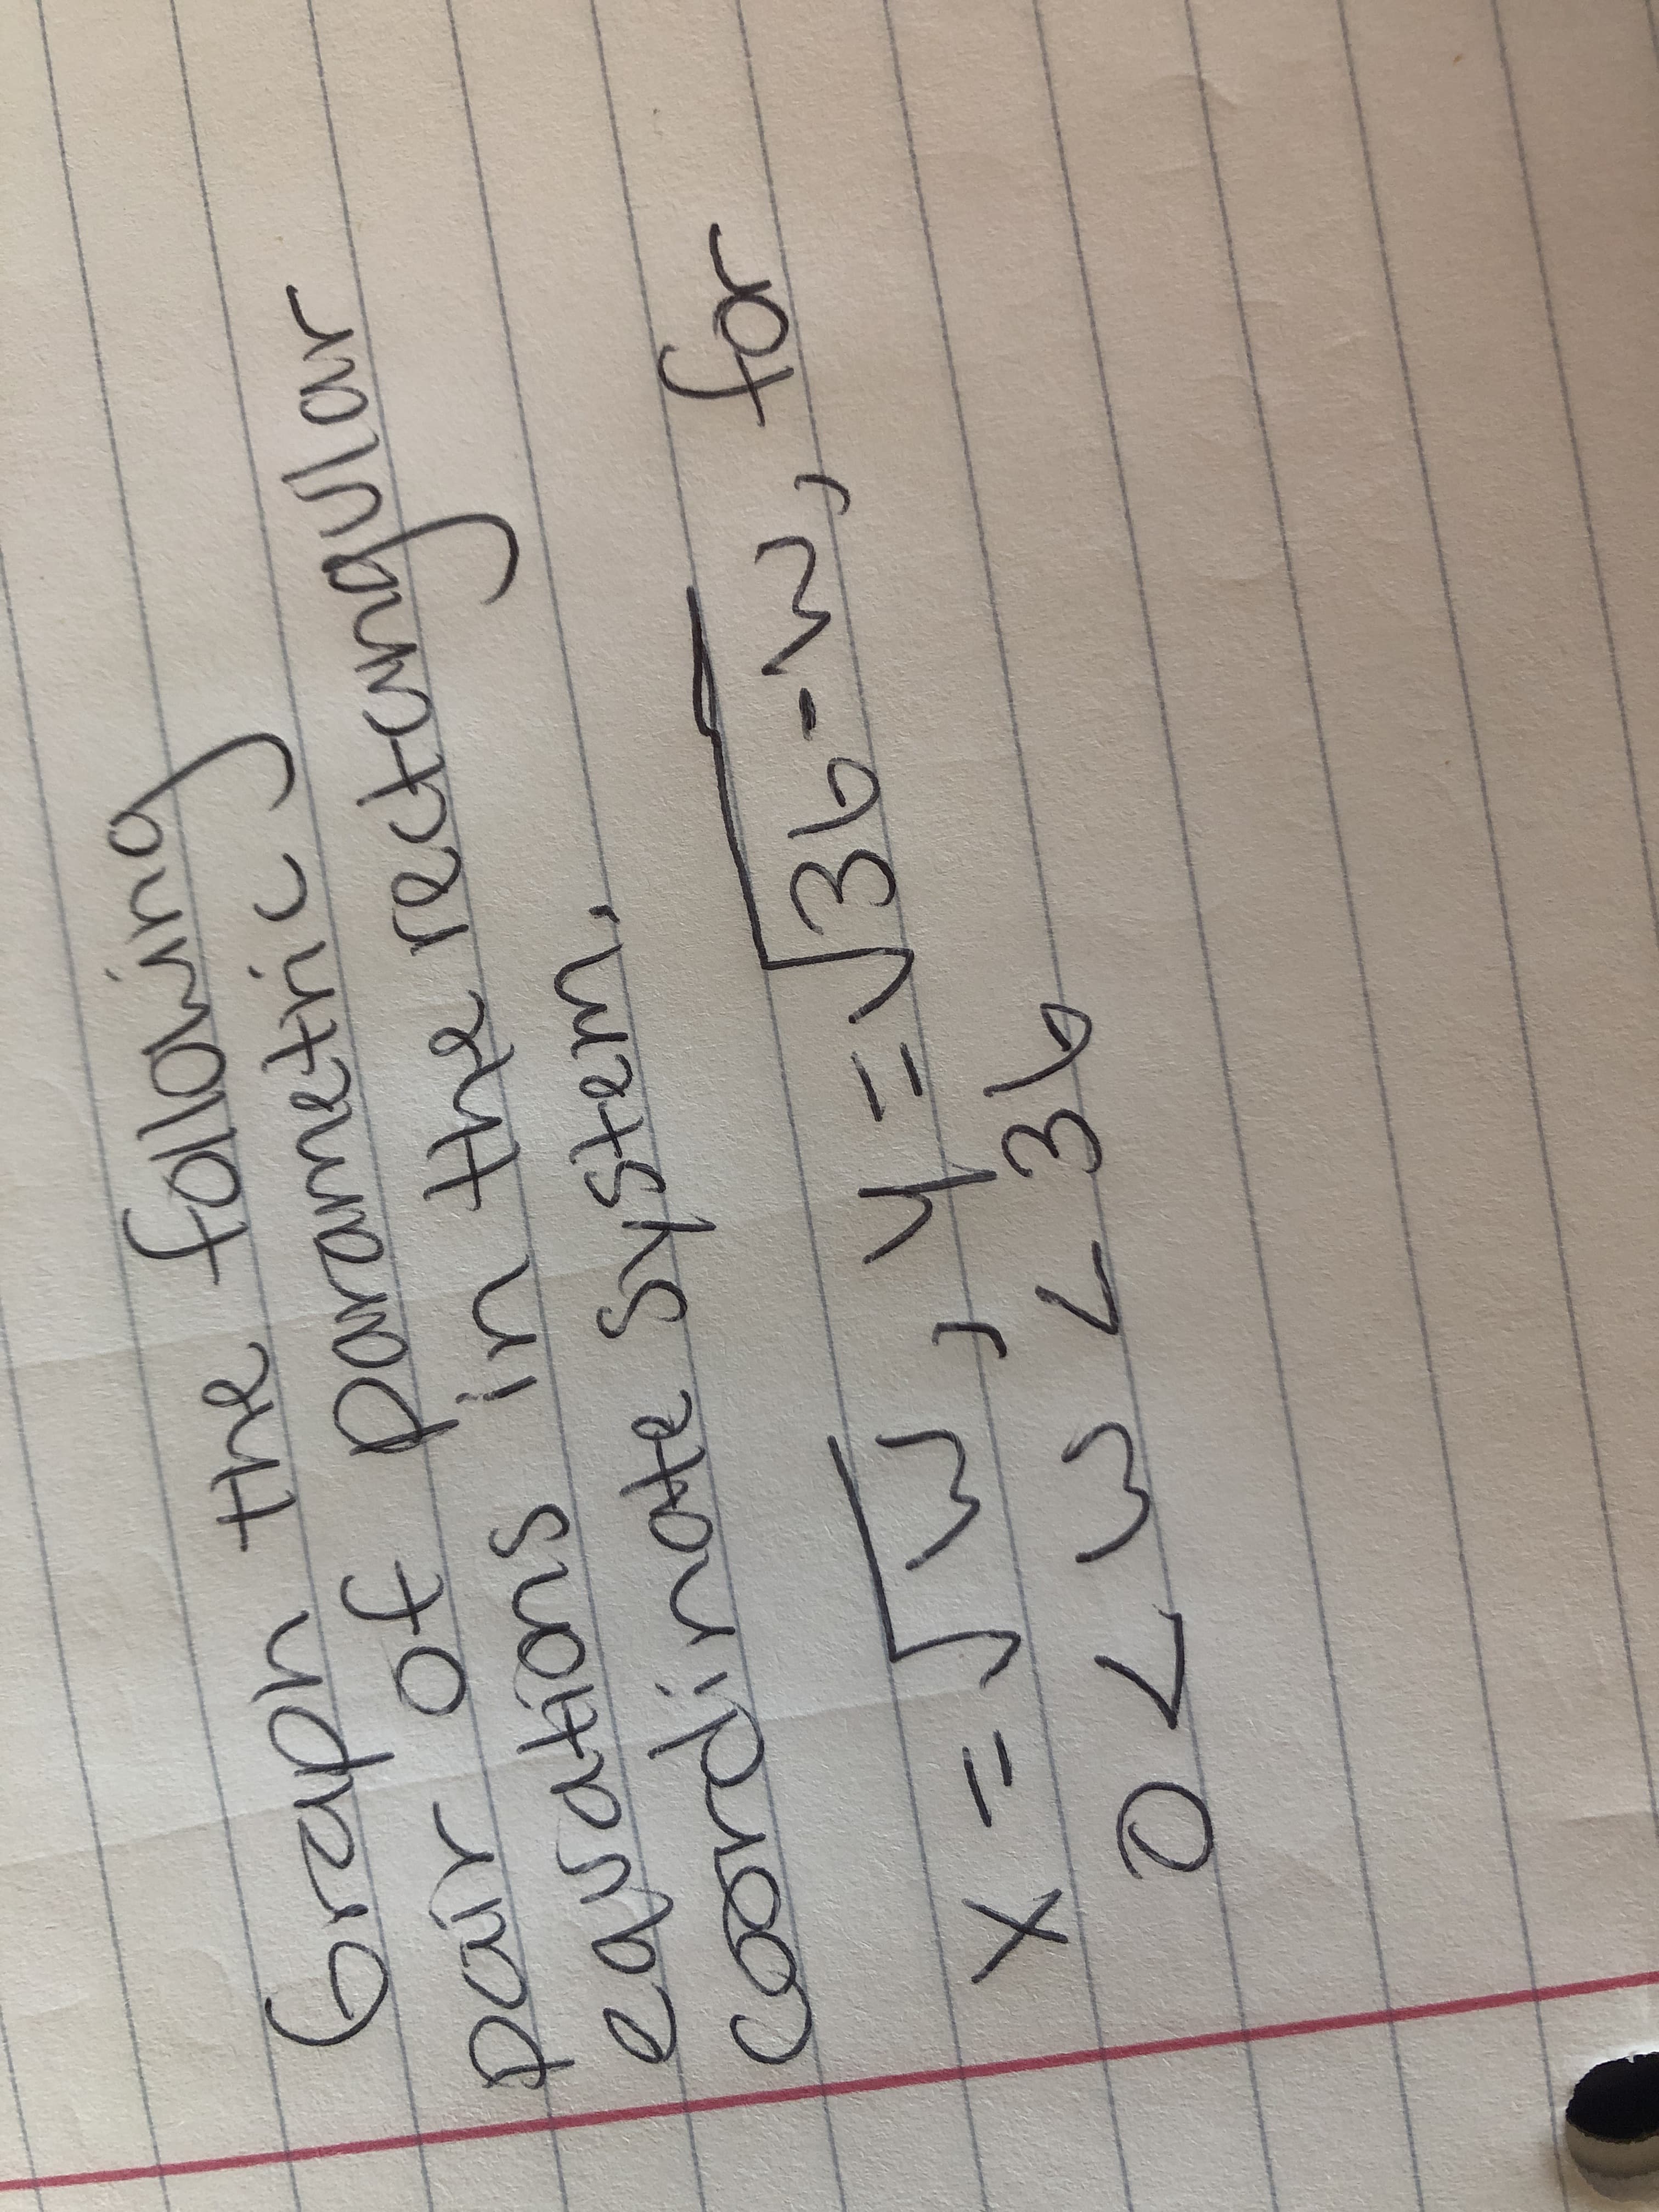 Graph the following
pair of parametric
equations in the rectangular
coordinate system.
x = √w, y = √36-w, for
0 < w < 36